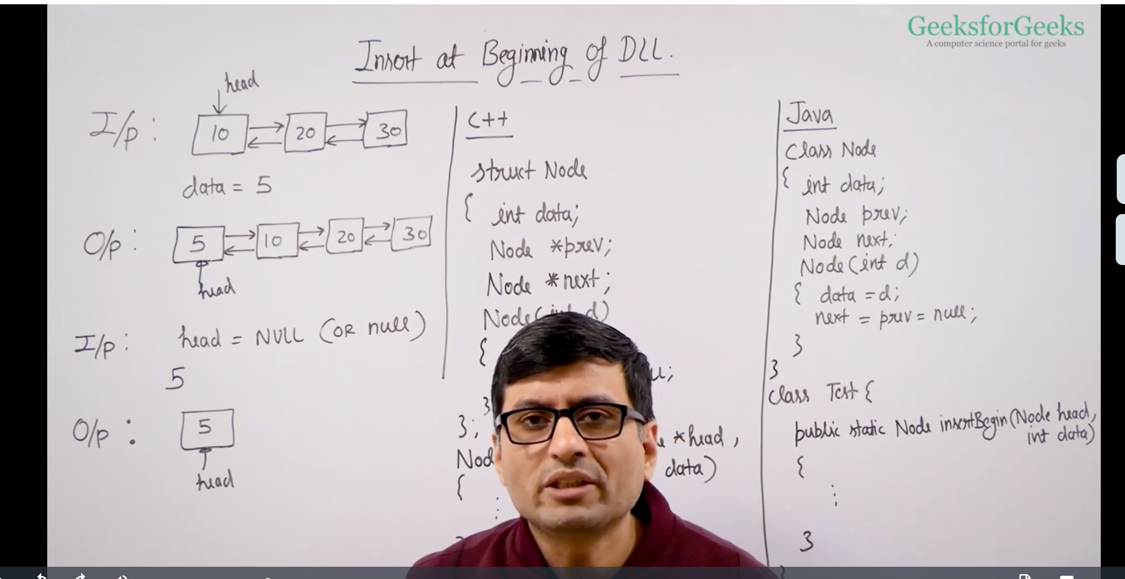 GeeksforGeeks
A computer science portal for geeks
Insert at Beginning of DLL.
head
I/p :
10
20
30
data = 5
O/p :
5
10
20
30
head
I/p :
head = NULL (OR null)
5
O/p :
5
head
C++
struct Node
{ int data;
Node *prev;
Node *next;
Node(int d)
{
}
};
*head,
data)
{
⋮
Java
class Node
{ int data;
Node prev;
Node next;
Node(int d)
{ data = d;
next = prev = null;
}
}
class Test {
public static Node insertBegin(Node head,
int data)
{
⋮
}